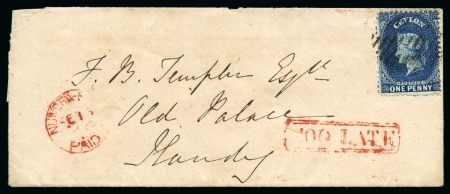 CEYLON
POSTAGE
ONE PENNY
F. B. Templer Esqre
Old Palace
Kandy
PAID
TOO LATE